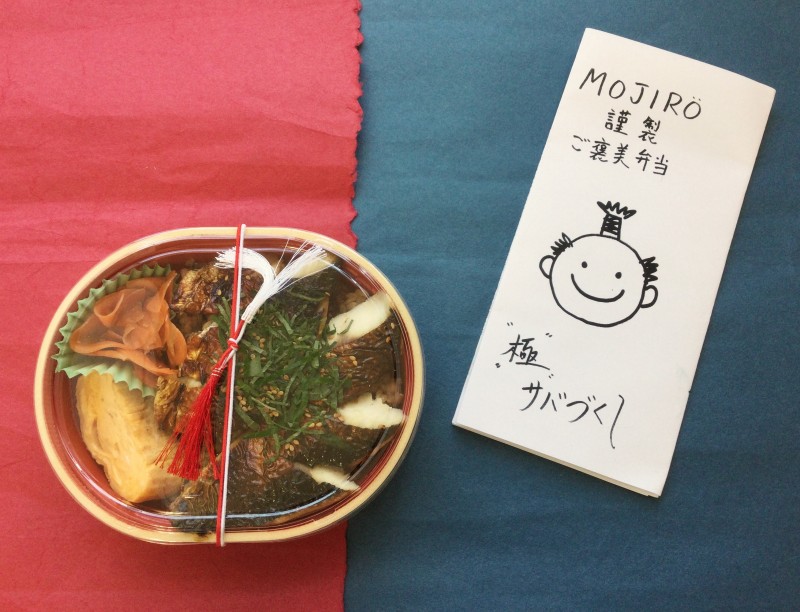 MOJIRÖ
謹製
ご褒美弁当
"極"
サバづくし